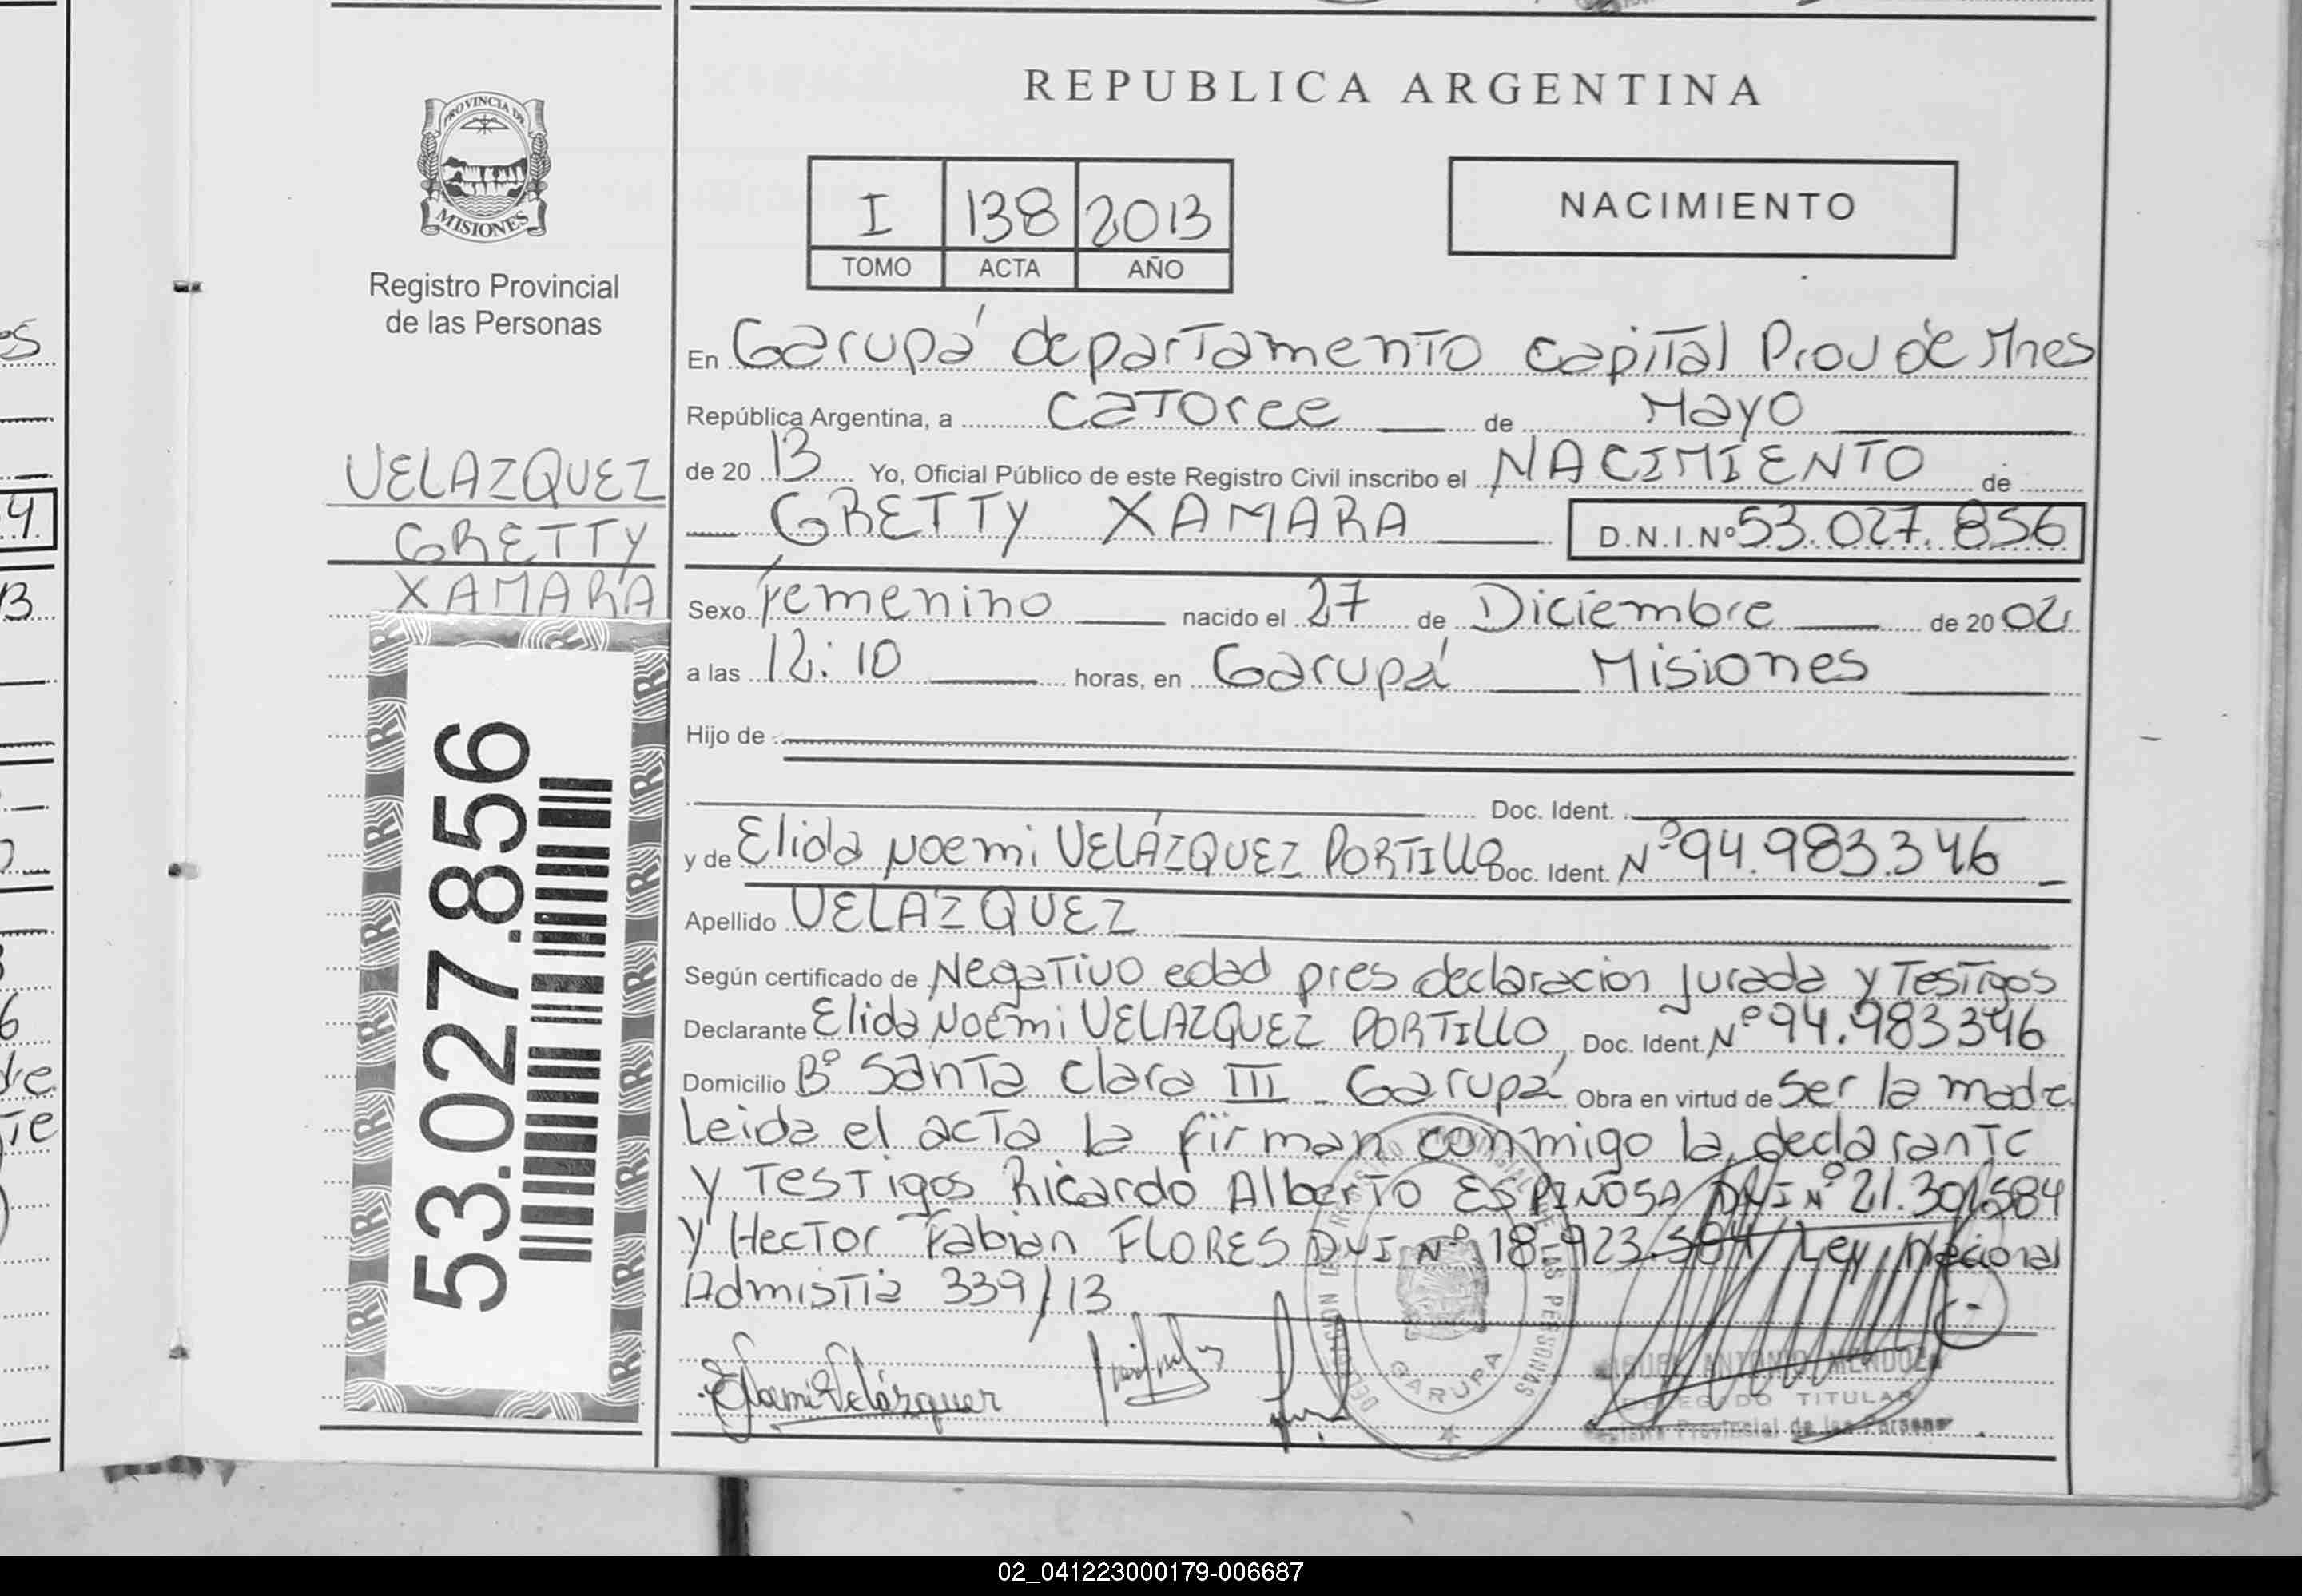 REPUBLICA ARGENTINA
PROVINCIA DE
MISIONES
Registro Provincial
de las Personas
I 138 2013
TOMO ACTA AÑO
NACIMIENTO
En Garupá departamento Capital Prov de Mnes
República Argentina, a catorce de Mayo
de 20 13 Yo, Oficial Público de este Registro Civil inscribo el NACIMIENTO de
GRETTY XAMARA D.N.I.Nº 53.027.856
VELAZQUEZ
GRETTY
XAMARA
53.027.856
Sexo femenino nacido el 27 de Diciembre de 20 02
a las 12:10 horas, en Garupá Misiones
Hijo de
Doc. Ident.
y de Elida Noemi VELÁZQUEZ PORTILLO Doc. Ident. Nº 94.983.346
Apellido VELAZQUEZ
Según certificado de Negativo edad pres declaracion jurada y Testigos
Declarante Elida Noemi VELAZQUEZ PORTILLO, Doc. Ident. Nº 94.983346
Domicilio Bº Santa Clara III - Garupá Obra en virtud de Ser la madre
Leida el acta la firman conmigo la declarante
y Testigos Ricardo Alberto ESPINOSA DNI Nº 21.301584
y Hector Fabian FLORES DNI Nº 18.923.504 Ley Nacional
Admistia 339/13
ENoemiVelázquez
GARUPA
MIGUEL ANTONIO MENDOZA
DELEGADO TITULAR
Registro Provincial de las Personas
es
4
B
6
dre
Te
02_041223000179-006687